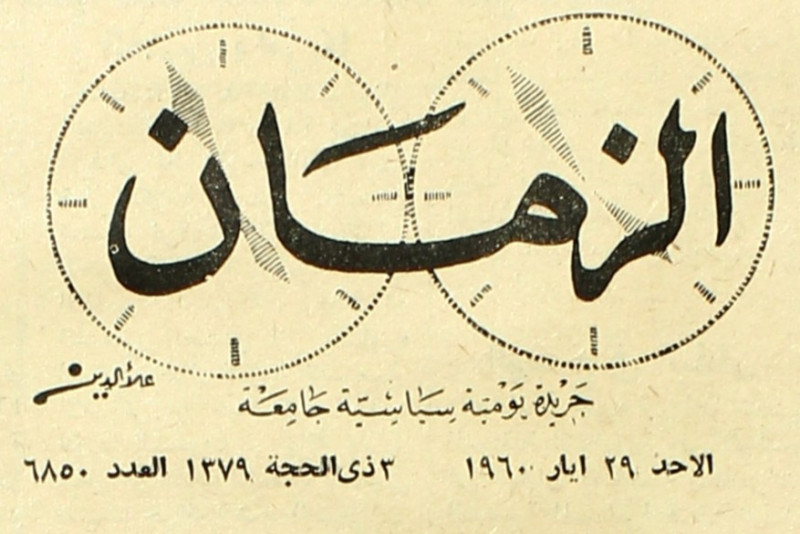 الزمان
علاءالدين
جَرِيْدَة يَوْمِيَّة سِيَاسِيَّة جَامِعَة
الاحد ٢٩ ايار ١٩٦٠ ٣ ذى الحجة ١٣٧٩ العدد ٦٨٥٠